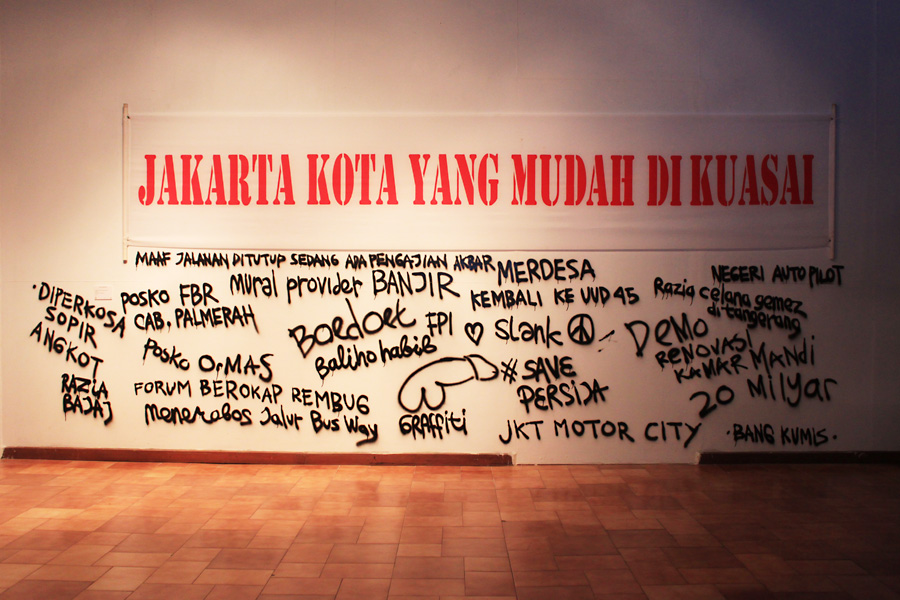 JAKARTA KOTA YANG MUDAH DI KUASAI
MAAF JALANAN DITUTUP SEDANG ADA PENGAJIAN AKBAR
MERDESA
NEGERI AUTO PILOT
·DIPERKOSA
SOPIR
ANGKOT
POSKO FBR
CAB. PALMERAH
Mural provider BANJIR
KEMBALI KE UUD 45
Razia celana gemez
di tangerang
Boedoet
FPI
Baliho habib
Slank
DEMO
RENOVASI
KAMAR MANDI
20 Milyar
Posko ORMAS
# SAVE
PERSIJA
RAZIA
BAJAJ
FORUM BEROKAP REMBUG
Menerabos Jalur Bus Way
GRAffiti
JKT MOTOR CITY
·BANG KUMIS·